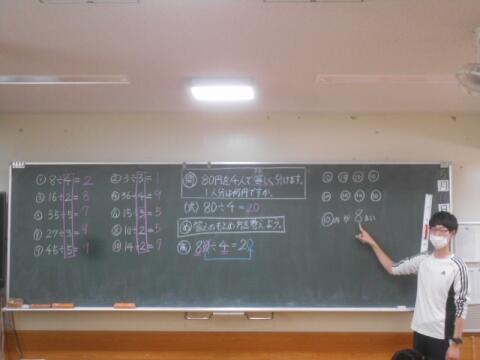 ① 8÷4=2
③ 16÷2=8
⑤ 35÷5=7
⑦ 27÷3=9
⑨ 45÷5=9
② 3÷3=1
④ 36÷4=9
⑥ 15÷3=5
⑧ 10÷2=5
⑩ 14÷2=7
問 80円を4人で等しく分けます。
1人分は何円ですか。
(式) 80÷4=20
め 答えのもとめ方を考えよう。
80÷4=20
⑩ ⑩ ⑩ ⑩
⑩ ⑩ ⑩ ⑩
⑩ が 8
月
日